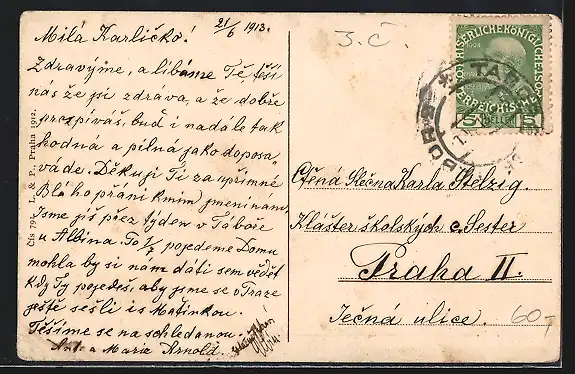 21/6 1913.
Milá Karličko!
Zdravíme, a líbáme Tě, těší
nás že jsi zdráva, a že dobře
prospíváš, buď i nadále tak
hodná a pilná jako doposa-
váde. Děkuji Ti za upřímné
Blaho přání kmm jmeninam,
Jsme již přez týden v Táboře
u Albína. To 1/7 pojedeme Domu
mohla by si nám dáti sem vědět
Kdy Ty pojedeš, aby jsme se v Praze
ještě sešli i s Matinkou.
Těšíme se na schledanou.
Ant. a Marie Arnold.
Čís 79 L. & P., Praha 1912.
3.Č.
KAISERLICHE KÖNIGLICHE ÖSTERREICHISCHE
1908
5 HELLER 5
TÁBOR
Ctěná Slečna Karla Stelzig.
Klášter školských c. Sester
Praha II.
Ječná ulice.
60,-